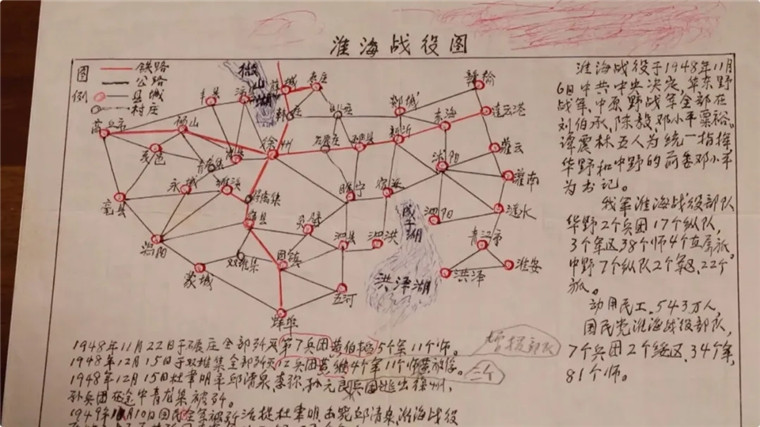 淮海战役图
图例
铁路
公路
县城
村庄
淮海战役于1948年11月
6日中共中央决定,华东野
战军、中原野战军全部在
刘伯承、陈毅、邓小平粟裕、
谭震林五人为统一指挥,
华野和中野的前委邓小平
为书记。
我军淮海战役部队
华野2个兵团17个纵队,
3个军区38个师4个直属旅
中野7个纵队2个军区,22个
旅。
动用民工543万人,
国民党淮海战役部队,
7个兵团2个绥区,34个军
81个师。
丰县
赣榆
商丘市
砀山
郯城
东海
连云港
徐州
新沂
沭阳
灌云
灌南
夏邑
永城
睢宁
宿迁
泗阳
涟水
亳县
宿县
灵璧
泗县
泗洪
成子湖
涡阳
双堆集
固镇
洪泽湖
洪泽
淮安
蒙城
五河
蚌埠
1948年11月22日于碾庄全部歼灭第7兵团黄伯韬5个军11个师。
1948年12月15日于双堆集全部歼灭12兵团黄维4个军11个师黄被俘。
1948年12月15日杜聿明率邱清泉、李弥、孙元良兵团逃出徐州,
孙兵团在途中青龙集被歼。
1949年1月10日国民全军被歼活捉杜聿明击毙邱清泉,淮海战役